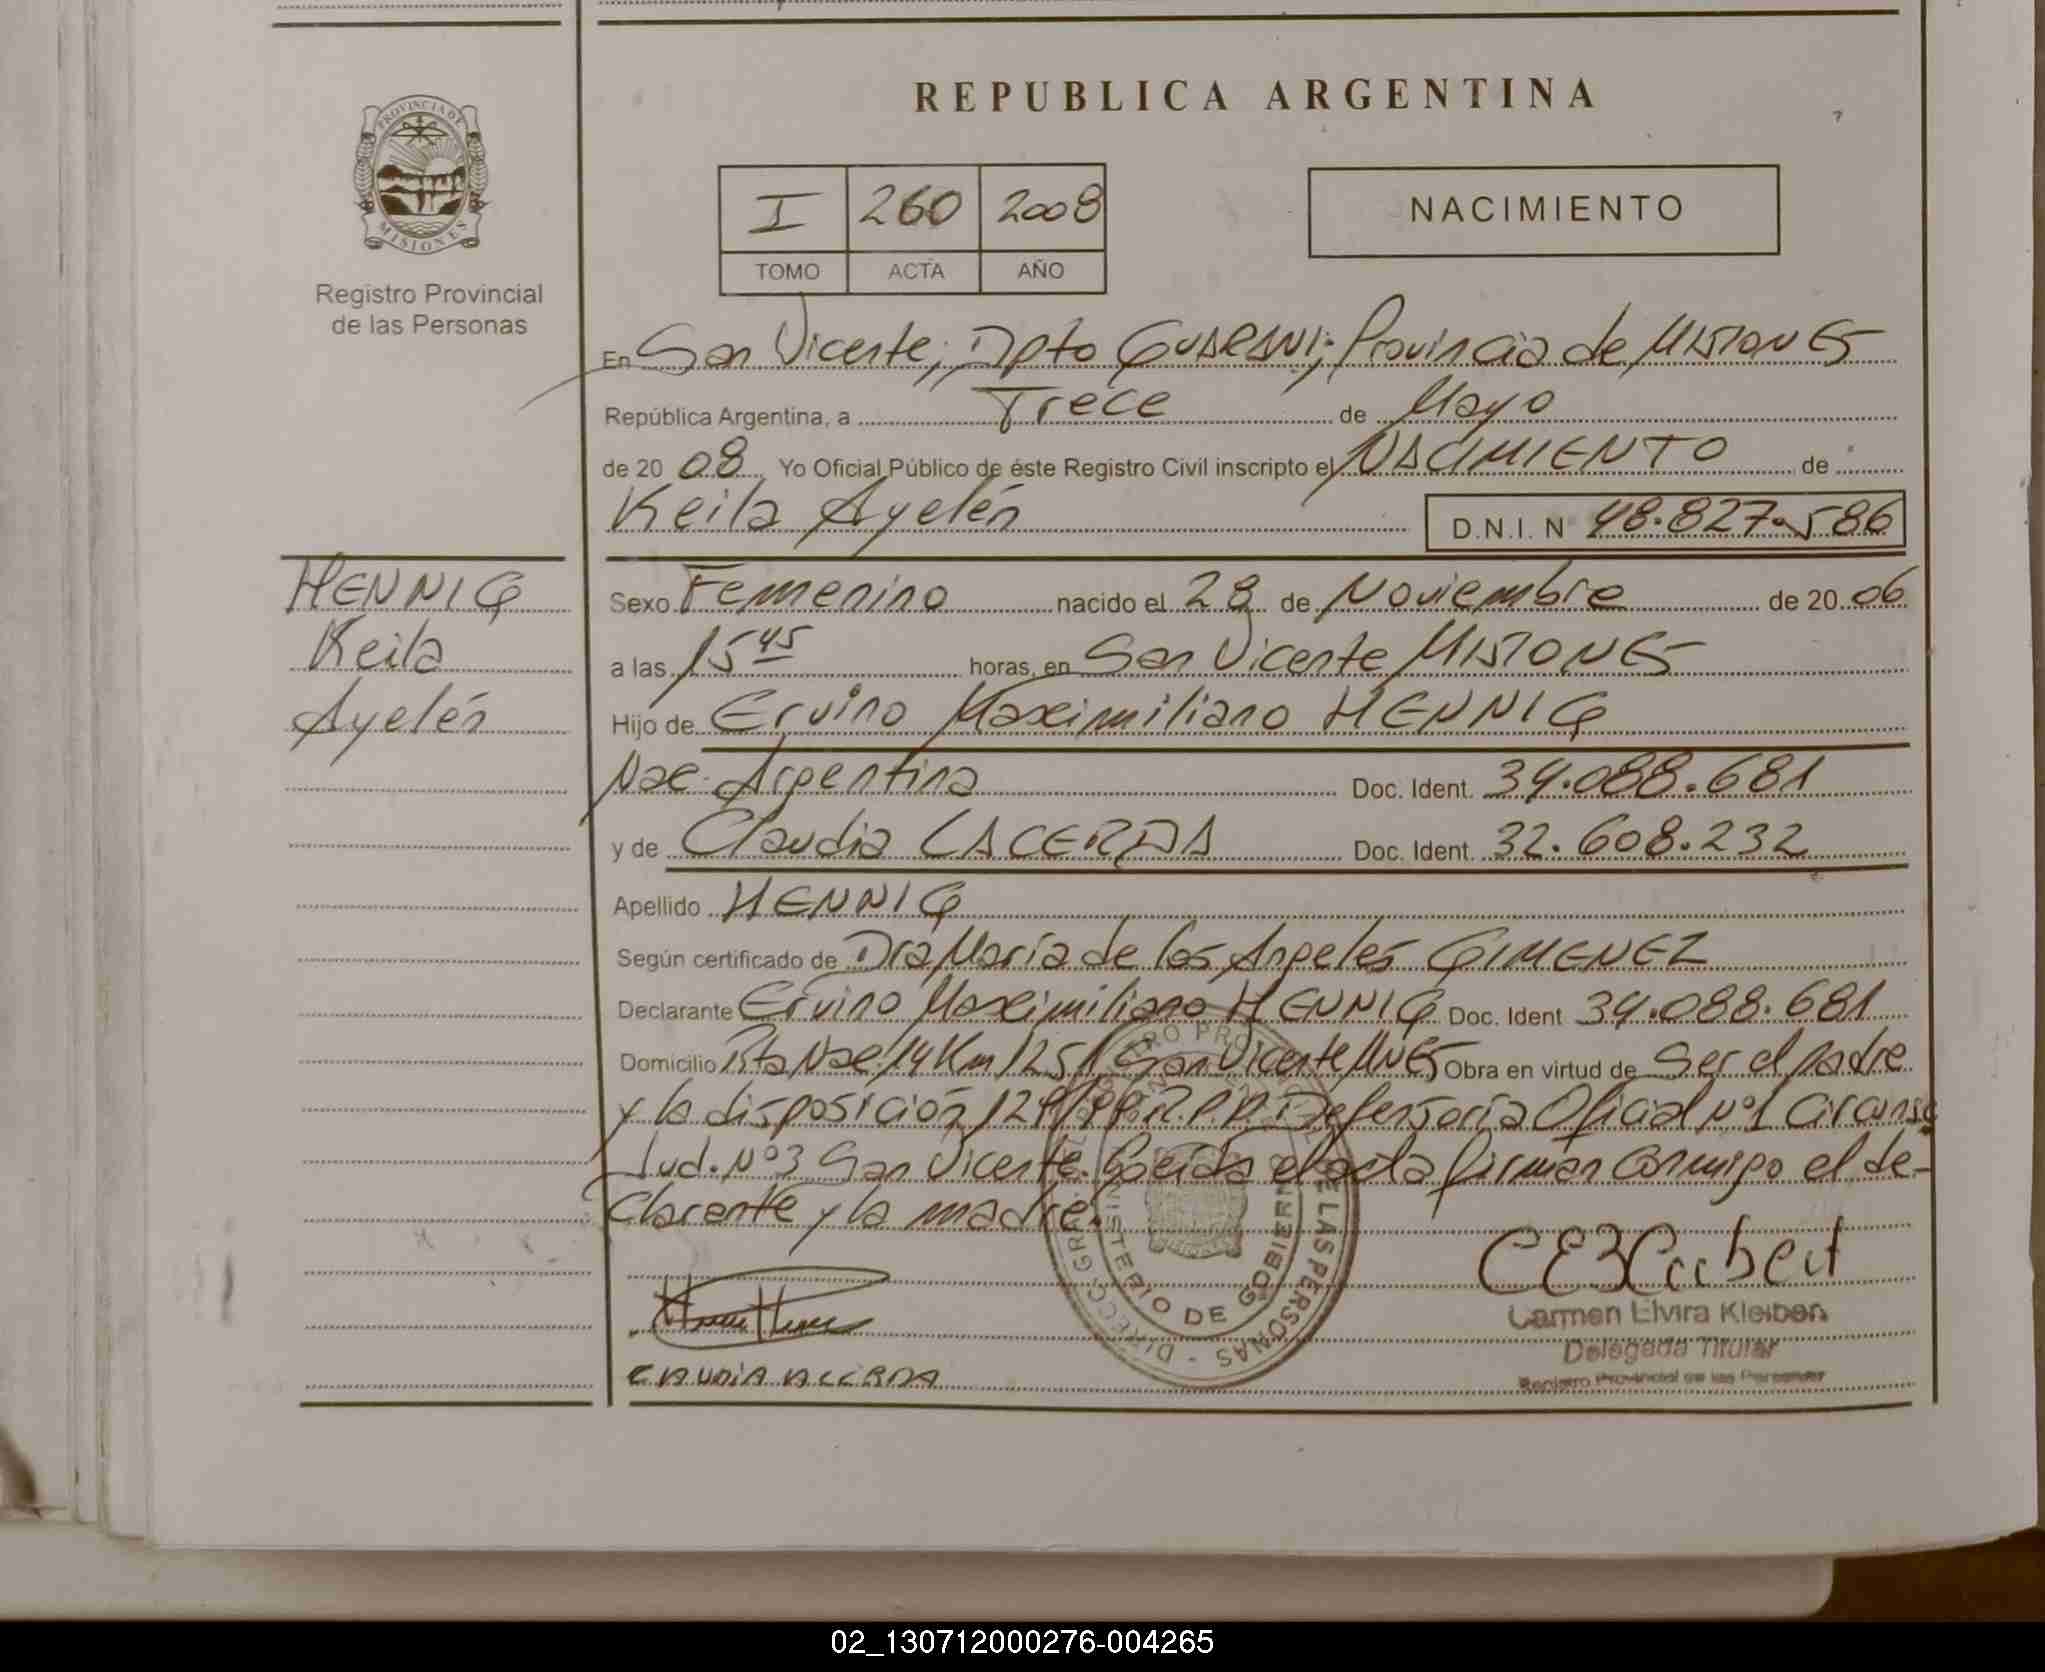 REPUBLICA ARGENTINA
PROVINCIA DE MISIONES
Registro Provincial
de las Personas
I 260 2008
TOMO ACTA AÑO
NACIMIENTO
En San Vicente, Dpto GUARANI; Provincia de MISIONES
República Argentina, a Trece de Mayo
de 20 08 Yo Oficial Público de éste Registro Civil inscripto el NACIMIENTO de
Keila Ayelén D.N.I. N 48.827.586
HENNIG
Keila
Ayelén
Sexo Femenino nacido el 28 de Noviembre de 20 06
a las 15 45 horas, en San Vicente MISIONES
Hijo de Ervino Maximiliano HENNIG
Nac. Argentina Doc. Ident. 34.088.681
y de Claudia LACERDA Doc. Ident. 32.608.232
Apellido HENNIG
Según certificado de Dra María de los Angeles GIMENEZ
Declarante Ervino Maximiliano HENNIG Doc. Ident 34.088.681
Domicilio Rta Nac. 14 Km 1251 San Vicente MNES Obra en virtud de Ser el padre
y la disposición R.P.P. Defensoría Oficial Nº 1 Circunsc
Jud. Nº 3 San Vicente. el acta firman conmigo el de-
clarante y la madre.
CLAUDIA LACERDA
Carmen Elvira Kleiben
Delegada Titular
Registro Provincial de las Personas
DIRECC. GRAL. DEL REGISTRO PROVINCIAL DE LAS PERSONAS
MINISTERIO DE GOBIERNO
02_130712000276-004265